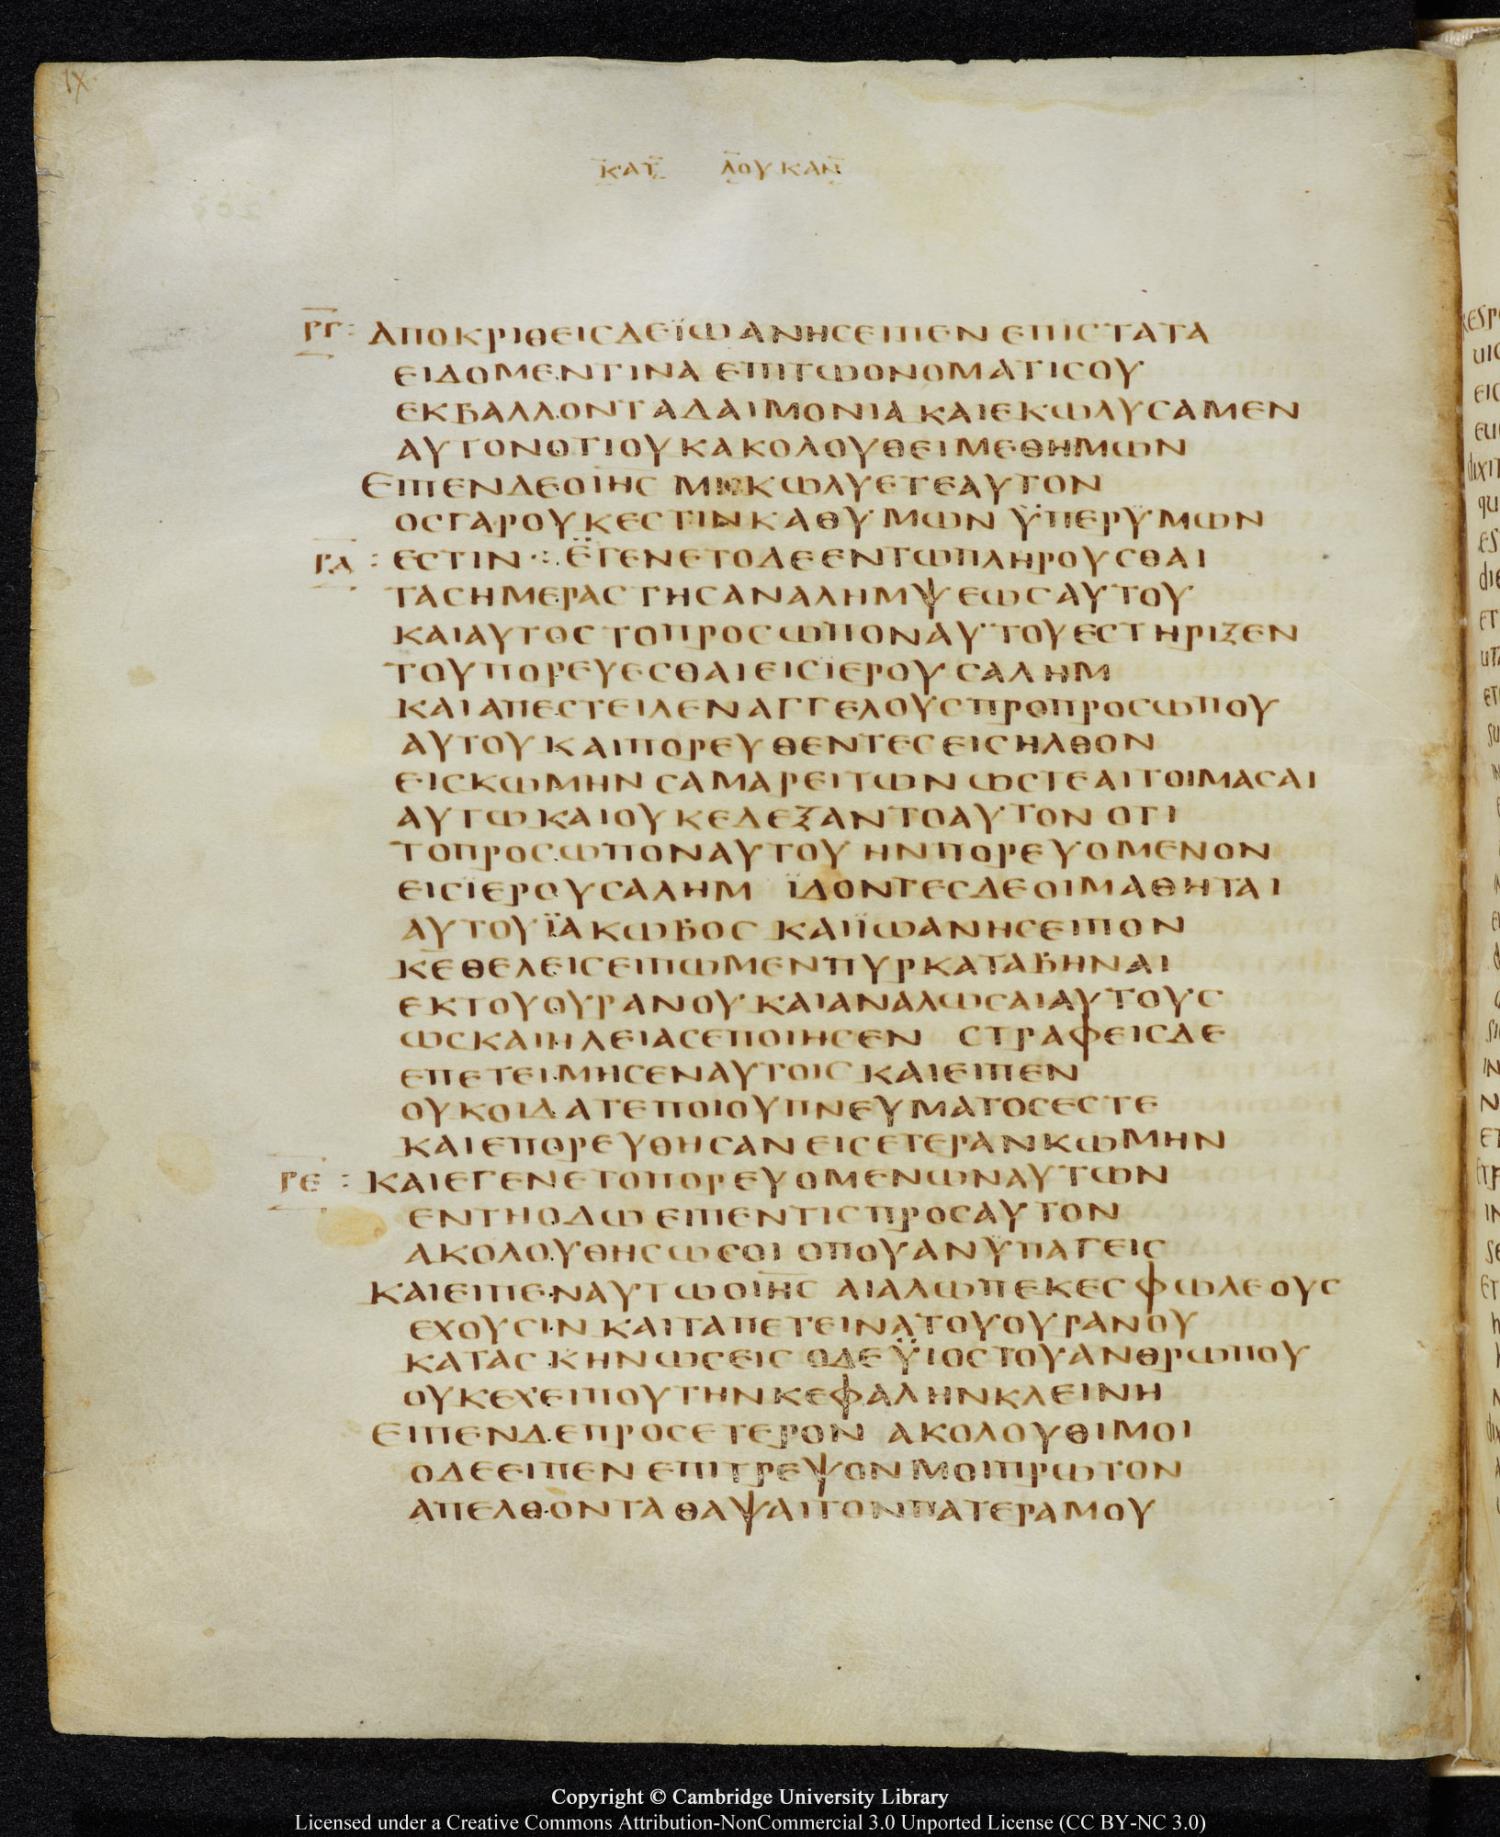 ΙΧ
ΚΑΤ ΛΟΥΚΑΝ
ΡΓ: ΑΠΟΚΡΙΘΕΙCΔΕΪΩΑΝΗCΕΙΠΕΝ ΕΠΙCΤΑΤΑ
ΕΙΔΟΜΕΝΤΙΝΑ ΕΠΙΤΩΟΝΟΜΑΤΙCΟΥ
ΕΚΒΑΛΛΟΝΤΑΔΑΙΜΟΝΙΑ ΚΑΙΕΚΩΛΥCΑΜΕΝ
ΑΥΤΟΝΟΤΙΟΥΚΑΚΟΛΟΥΘΕΙΜΕΘΗΜΩΝ
ΕΙΠΕΝΔΕΟΙΗC ΜΗΚΩΛΥΕΤΕΑΥΤΟΝ
ΟCΓΑΡΟΥΚΕCΤΙΝΚΑΘΥΜΩΝ ΫΠΕΡΫΜΩΝ
ΡΔ : ΕCΤΙΝ·:· ΕΓΕΝΕΤΟΔΕΕΝΤΩΠΛΗΡΟΥCΘΑΙ
ΤΑCΗΜΕΡΑCΤΗCΑΝΑΛΗΜΨΕΩCΑΥΤΟΥ
ΚΑΙΑΥΤΟCΤΟΠΡΟCΩΠΟΝΑΥΤΟΥΕCΤΗΡΙΖΕΝ
ΤΟΥΠΟΡΕΥΕCΘΑΙΕΙCΪΕΡΟΥCΑΛΗΜ
ΚΑΙΑΠΕCΤΕΙΛΕΝΑΓΓΕΛΟΥCΠΡΟΠΡΟCΩΠΟΥ
ΑΥΤΟΥΚΑΙΠΟΡΕΥΘΕΝΤΕCΕΙCΗΛΘΟΝ
ΕΙCΚΩΜΗΝ CΑΜΑΡΕΙΤΩΝ ΩCΤΕΑΙΤΟΙΜΑCΑΙ
ΑΥΤΩΚΑΙΟΥΚΕΔΕΞΑΝΤΟΑΥΤΟΝ ΟΤΙ
ΤΟΠΡΟCΩΠΟΝΑΥΤΟΥ ΗΝΠΟΡΕΥΟΜΕΝΟΝ
ΕΙCΪΕΡΟΥCΑΛΗΜ ΪΔΟΝΤΕCΔΕΟΙΜΑΘΗΤΑΙ
ΑΥΤΟΥΪΑΚΩΒΟC ΚΑΙΪΩΑΝΗCΕΙΠΟΝ
ΚΕΘΕΛΕΙCΕΙΠΩΜΕΝΠΥΡΚΑΤΑΒΗΝΑΙ
ΕΚΤΟΥΟΥΡΑΝΟΥ ΚΑΙΑΝΑΛΩCΑΙΑΥΤΟΥC
ΩCΚΑΙΗΛΕΙΑCΕΠΟΙΗCΕΝ CΤΡΑΦΕΙCΔΕ
ΕΠΕΤΕΙΜΗCΕΝΑΥΤΟΙC ΚΑΙΕΙΠΕΝ
ΟΥΚΟΙΔΑΤΕΠΟΙΟΥΠΝΕΥΜΑΤΟCΕCΤΕ
ΚΑΙΕΠΟΡΕΥΘΗCΑΝ ΕΙCΕΤΕΡΑΝΚΩΜΗΝ
ΡΕ : ΚΑΙΕΓΕΝΕΤΟΠΟΡΕΥΟΜΕΝΩΝΑΥΤΩΝ
ΕΝΤΗΟΔΩ ΕΙΠΕΝΤΙCΠΡΟCΑΥΤΟΝ
ΑΚΟΛΟΥΘΗCΩCΟΙ ΟΠΟΥΑΝΫΠΑΓΕΙC
ΚΑΙΕΙΠΕΝΑΥΤΩΟΙΗC ΑΙΑΛΩΠΕΚΕCΦΩΛΕΟΥC
ΕΧΟΥCΙΝ ΚΑΙΤΑΠΕΤΕΙΝΑΤΟΥΟΥΡΑΝΟΥ
ΚΑΤΑCΚΗΝΩCΕΙC ΟΔΕΫΙΟCΤΟΥΑΝΘΡΩΠΟΥ
ΟΥΚΕΧΕΙΠΟΥΤΗΝΚΕΦΑΛΗΝΚΛΕΙΝΗ
ΕΙΠΕΝΔΕΠΡΟCΕΤΕΡΟΝ ΑΚΟΛΟΥΘΙΜΟΙ
ΟΔΕΕΙΠΕΝ ΕΠΙΤΡΕΨΟΝΜΟΙΠΡΩΤΟΝ
ΑΠΕΛΘΟΝΤΑ ΘΑΨΑΙΤΟΝΠΑΤΕΡΑΜΟΥ
Copyright © Cambridge University Library
Licensed under a Creative Commons Attribution-NonCommercial 3.0 Unported License (CC BY-NC 3.0)